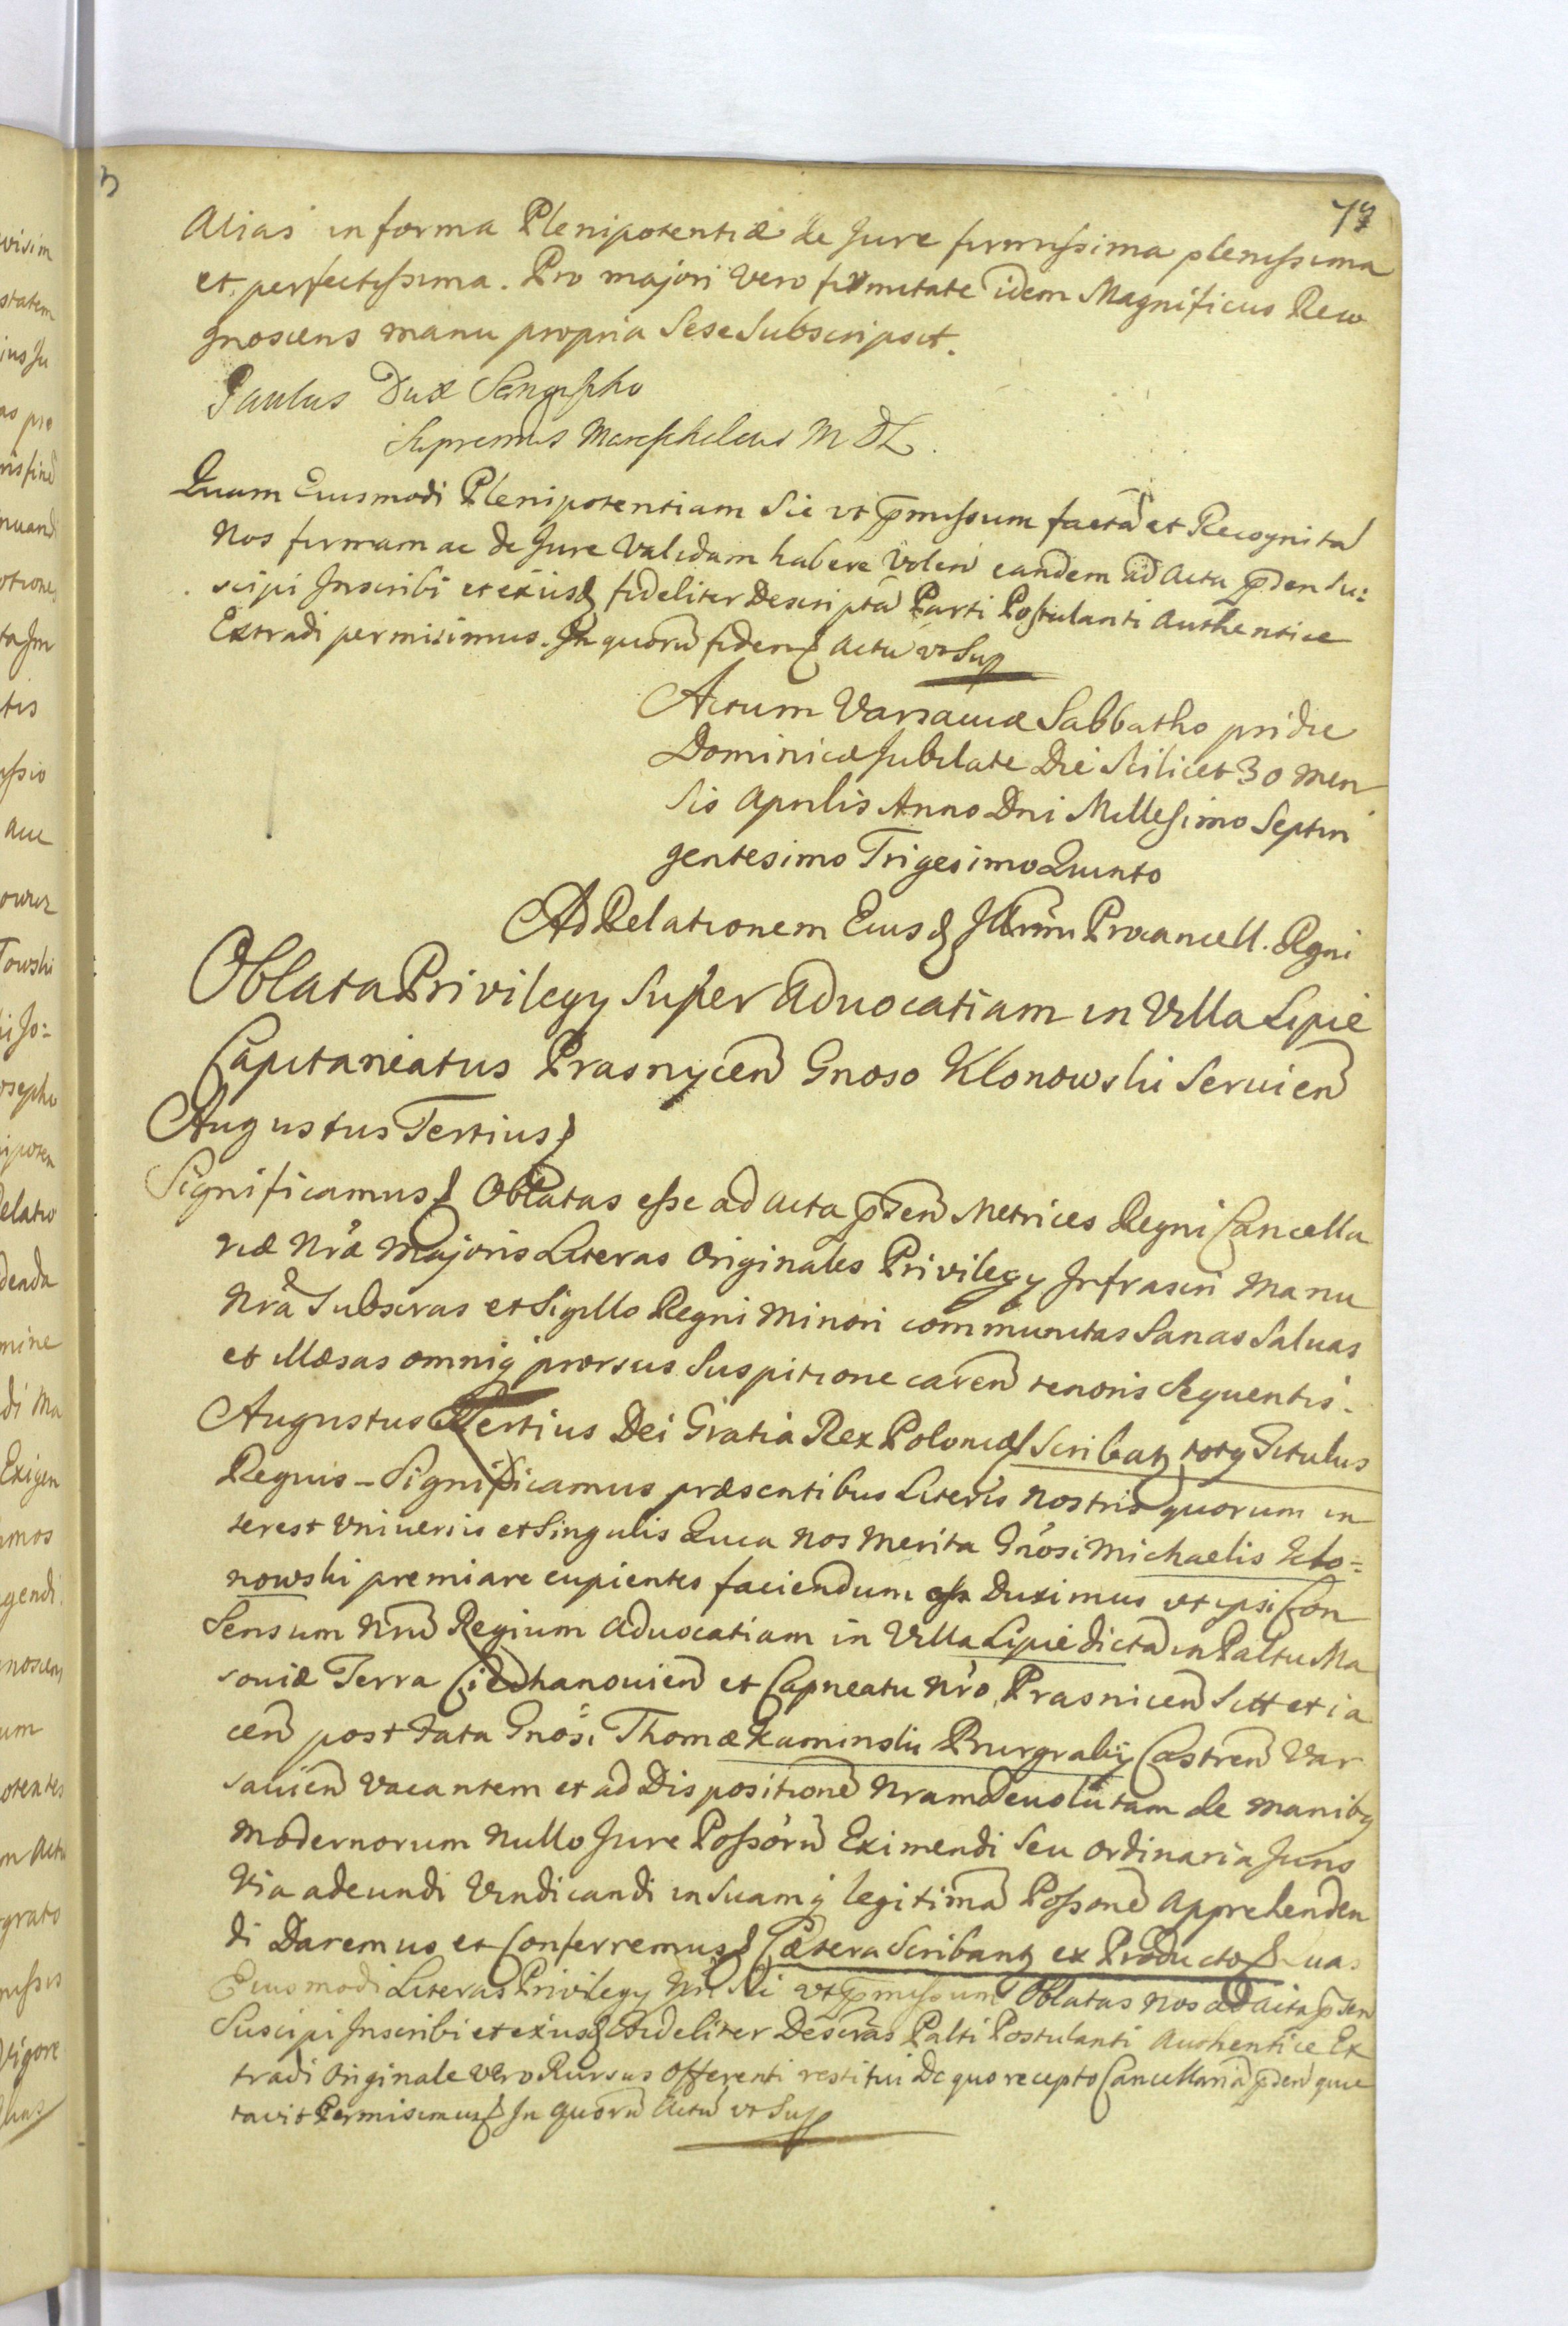 77
Alias in forma Plenipotentiæ de Jure firmissima plenissima
et perfectissima. Pro majori vero firmitate idem Magnificus Reco
gnoscens manu propria Sese Subscripsit.
Paulus Dux Sanguszko
Supremus Mareschalcus M D L.
Quam Eiusmodi Plenipotentiam Sic vt p̄missum factã et Recognitã
Nos firmam ac de Jure Validam habere Volen̄ eandem ad Acta p̄den Su:
scipi Inscribi et exiusq fideliter Descriptã Parti Postulanti Authentice
Extradi permisimus. In quorũ fidem Actũ vt Sup
Actum Varsaviæ Sabbatho pridie
Dominicæ Jubilate Die Scilicet 30 Men
sis Aprilis Anno Dni Millesimo Septin
gentesimo Trigesimo Quinto
Ad Relationem Eiusd Illrmi Procancell. Regni
Oblata Privilegy Super Aduocatiam in Villa Lipie
Capitaneatus Prasnycen̄ Gnoso Klonowski Seruien̄
Augustus Tertius
Significamus Oblatas esse ad Acta p̄sen̄ Metrices Regni Cancella
riæ Nrã Majoris Literas Originales Privilegy Infrascri Manu
Nrã Subscras et Sigillo Regni Minori communitas Sanas Saluas
et illæsas omniq prorsus Suspitione caren̄ tenoris Sequentis.
Augustus Tertius Dei Gratia Rex Poloniæ Scribatz totq Titulus
Regius - Significamus præsentibus Literis Nostris quorum in
terest Vniuersis et Singulis Quia Nos Merita Gnosi Michaelis Klo=
nowski premiare cupientes faciendum esse Duximus vt ipsi Con
Sensum Nrũ Regium Aduocatiam in Villa Lipie dictã in Paltu Ma
souiæ Terra Ciechanouien̄ et Capneatu Nro Prasnicen̄ Sitt et ia
cen̄ post fata Gnosi Thomæ Kaminski Burgrabij Castren̄ Var
sauien̄ Vacantem et ad Dispositionẽ Nram deuolutam de Manibq
Modernorum Nullo Jure Possorũ Eximendi Seu Ordinaria Juris
Via adeundi Vindicandi in Suamq legitimã Possonẽ Apprehenden
di Daremus et Conferremus Cætera Scribantz ex Producto Quas
Eiusmodi Literas Privilegy Nri Sic vt p̄missum Oblatas Nos ad Acta p̄sen
Suscipi Inscribi et exiusq fideliter Descras Palti Postulanti Authentice Ex
tradi Originale Vero Rursus Offerenti restitui De quo recepto Cancellariã p̄den̄ quie
tavit Permisimus In Quorũ Actũ vt Sup